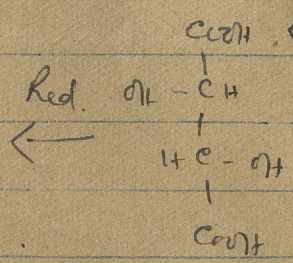 COOH
Red. OH - C H
H C - OH
COOH